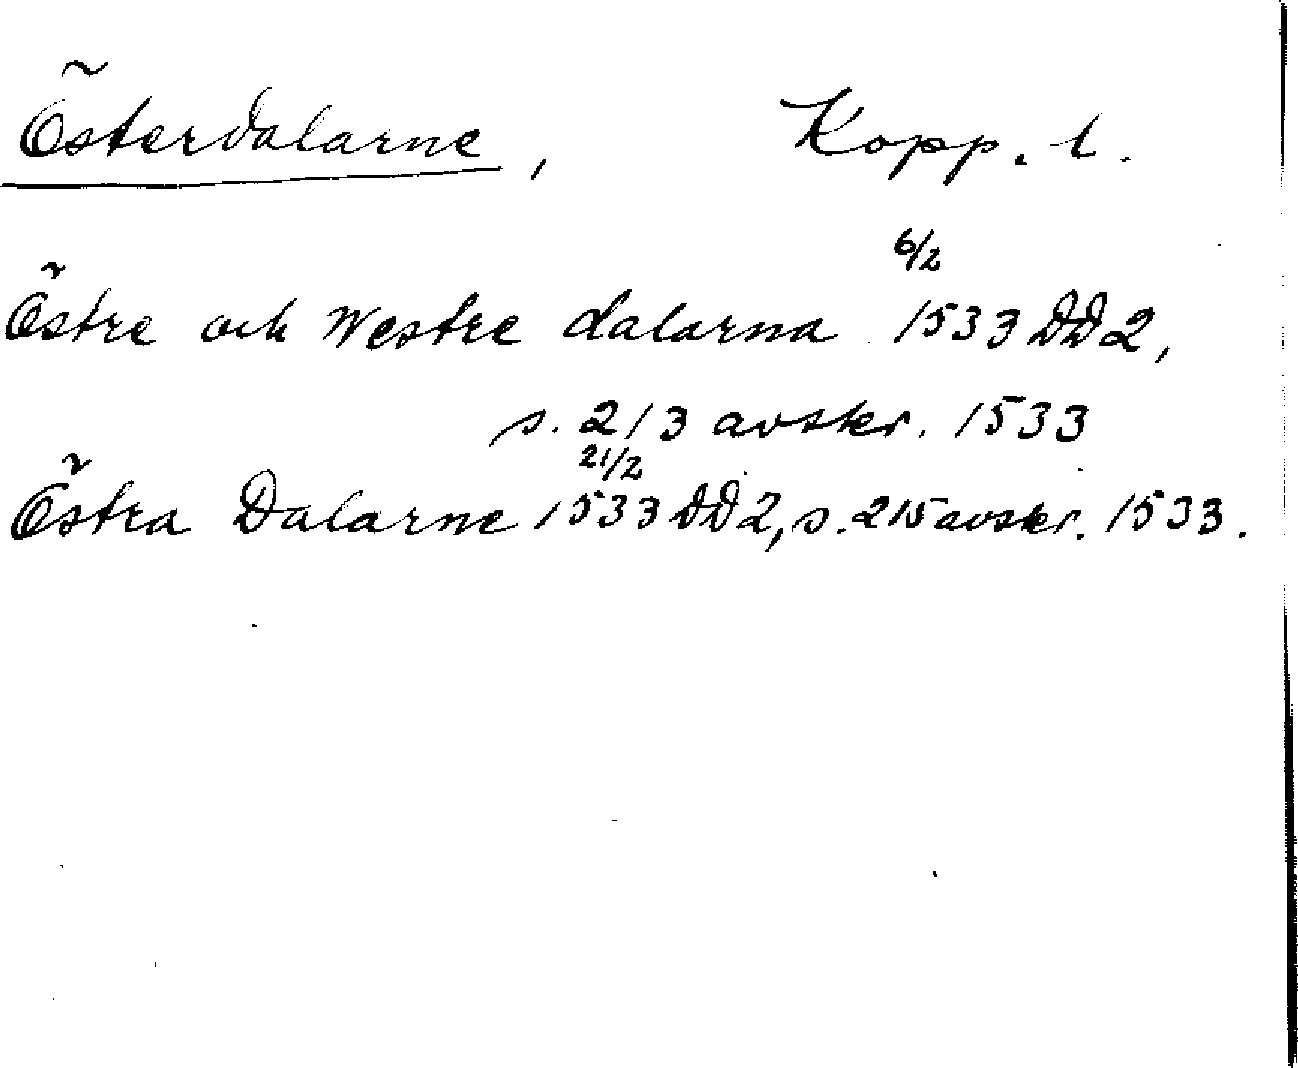 Österdalarne, Kopp. l.
Östre och Westre dalarna 6/2 1533 DD2,
s. 213 avskr. 1533
Östra Dalarne 21/2 1533 DD2, s. 215 avskr. 1533.